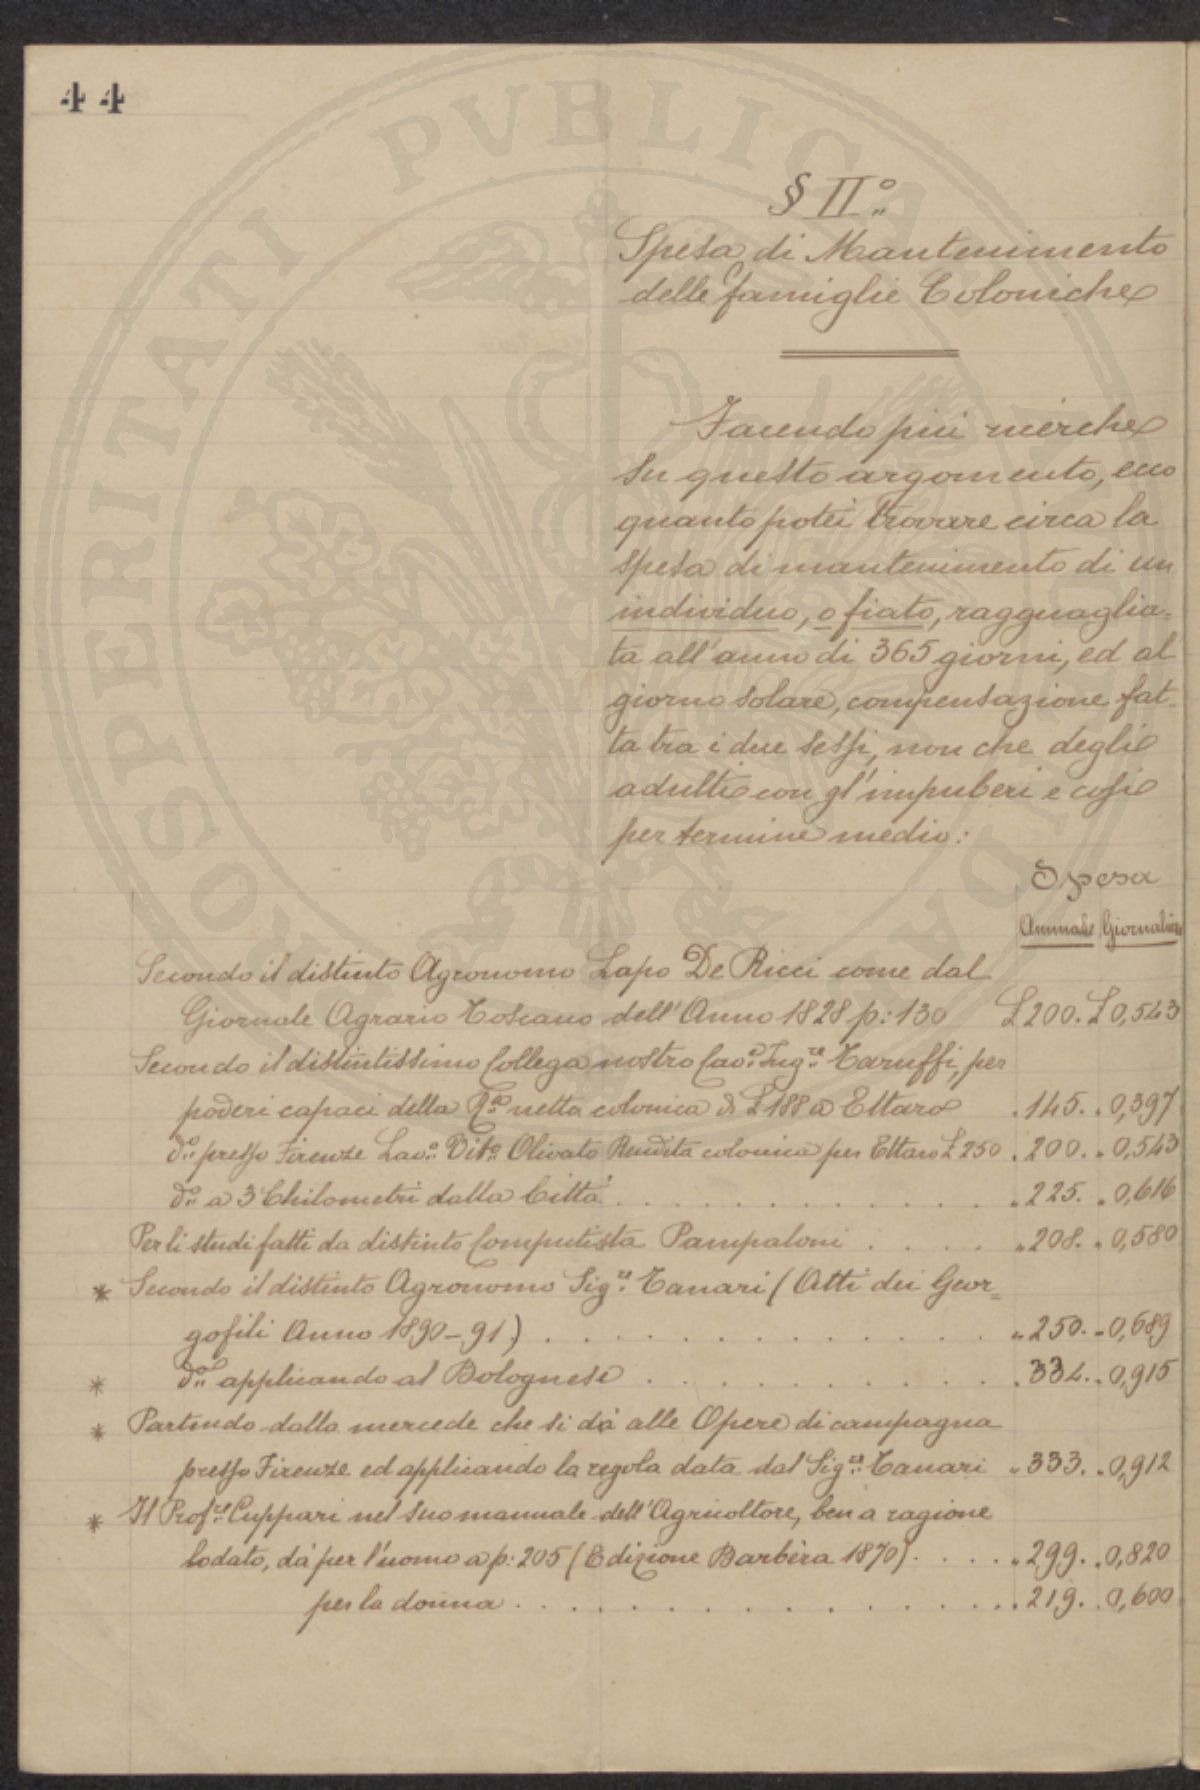 44
§ II.º
Spesa di Mantenimento
delle famiglie Coloniche
Facendo più ricerche
su questo argomento, ecco
quanto potei trovare circa la
spesa di mantenimento di un
individuo, o fiato, ragguaglia=
ta all'anno di 365 giorni, ed al
giorno solare, compensazione fat-
ta tra i due sessi, non che degli
adulti con gl'impuberi e così
per termine medio:
Spesa
Annuale Giornaliera
Secondo il distinto Agronomo Lapo De Ricci come dal
Giornale Agrario Toscano dell'Anno 1828 p: 130 £ 200. £ 0,543
Secondo il distintissimo Collega nostro Cav.e Ing.re Taruffi, per
poderi capaci della R.ta netta colonica di £ 188 a Ettaro „ 145. „ 0,397
d.o presso Firenze Lav.o Vit.o Olivato Rendita colonica per Ettaro £ 250 „ 200. „ 0,543
d.o a 3 Chilometri dalla Città . . . . . . . . . . . . „ 225. „ 0,616
Per li studi fatti da distinto Computista Pampaloni . . . . „ 208. „ 0,580
* Secondo il distinto Agronomo Sig.re Tanari (Atti dei Geor=
gofili Anno 1890-91.) . . . . . . . . . . . . . „ 250. „ 0,689
* d.o applicando al Bolognese . . . . . . . . . . . . 334. „ 0,915
* Partendo dalla mercede che si dà alle Opere di campagna
presso Firenze ed applicando la regola data dal Sig.re Tanari „ 333. „ 0,912
* Il Prof.re Cuppari nel suo manuale dell'Agricoltore, ben a ragione
lodato, dà per l'uomo a p: 205 (Edizione Barbèra 1870) . . . . . „ 299. „ 0,820
per la donna . . . . . . . . . . . . . . „ 219. „ 0,600
PROSPERITATI PVBLICAE AVGENDAE